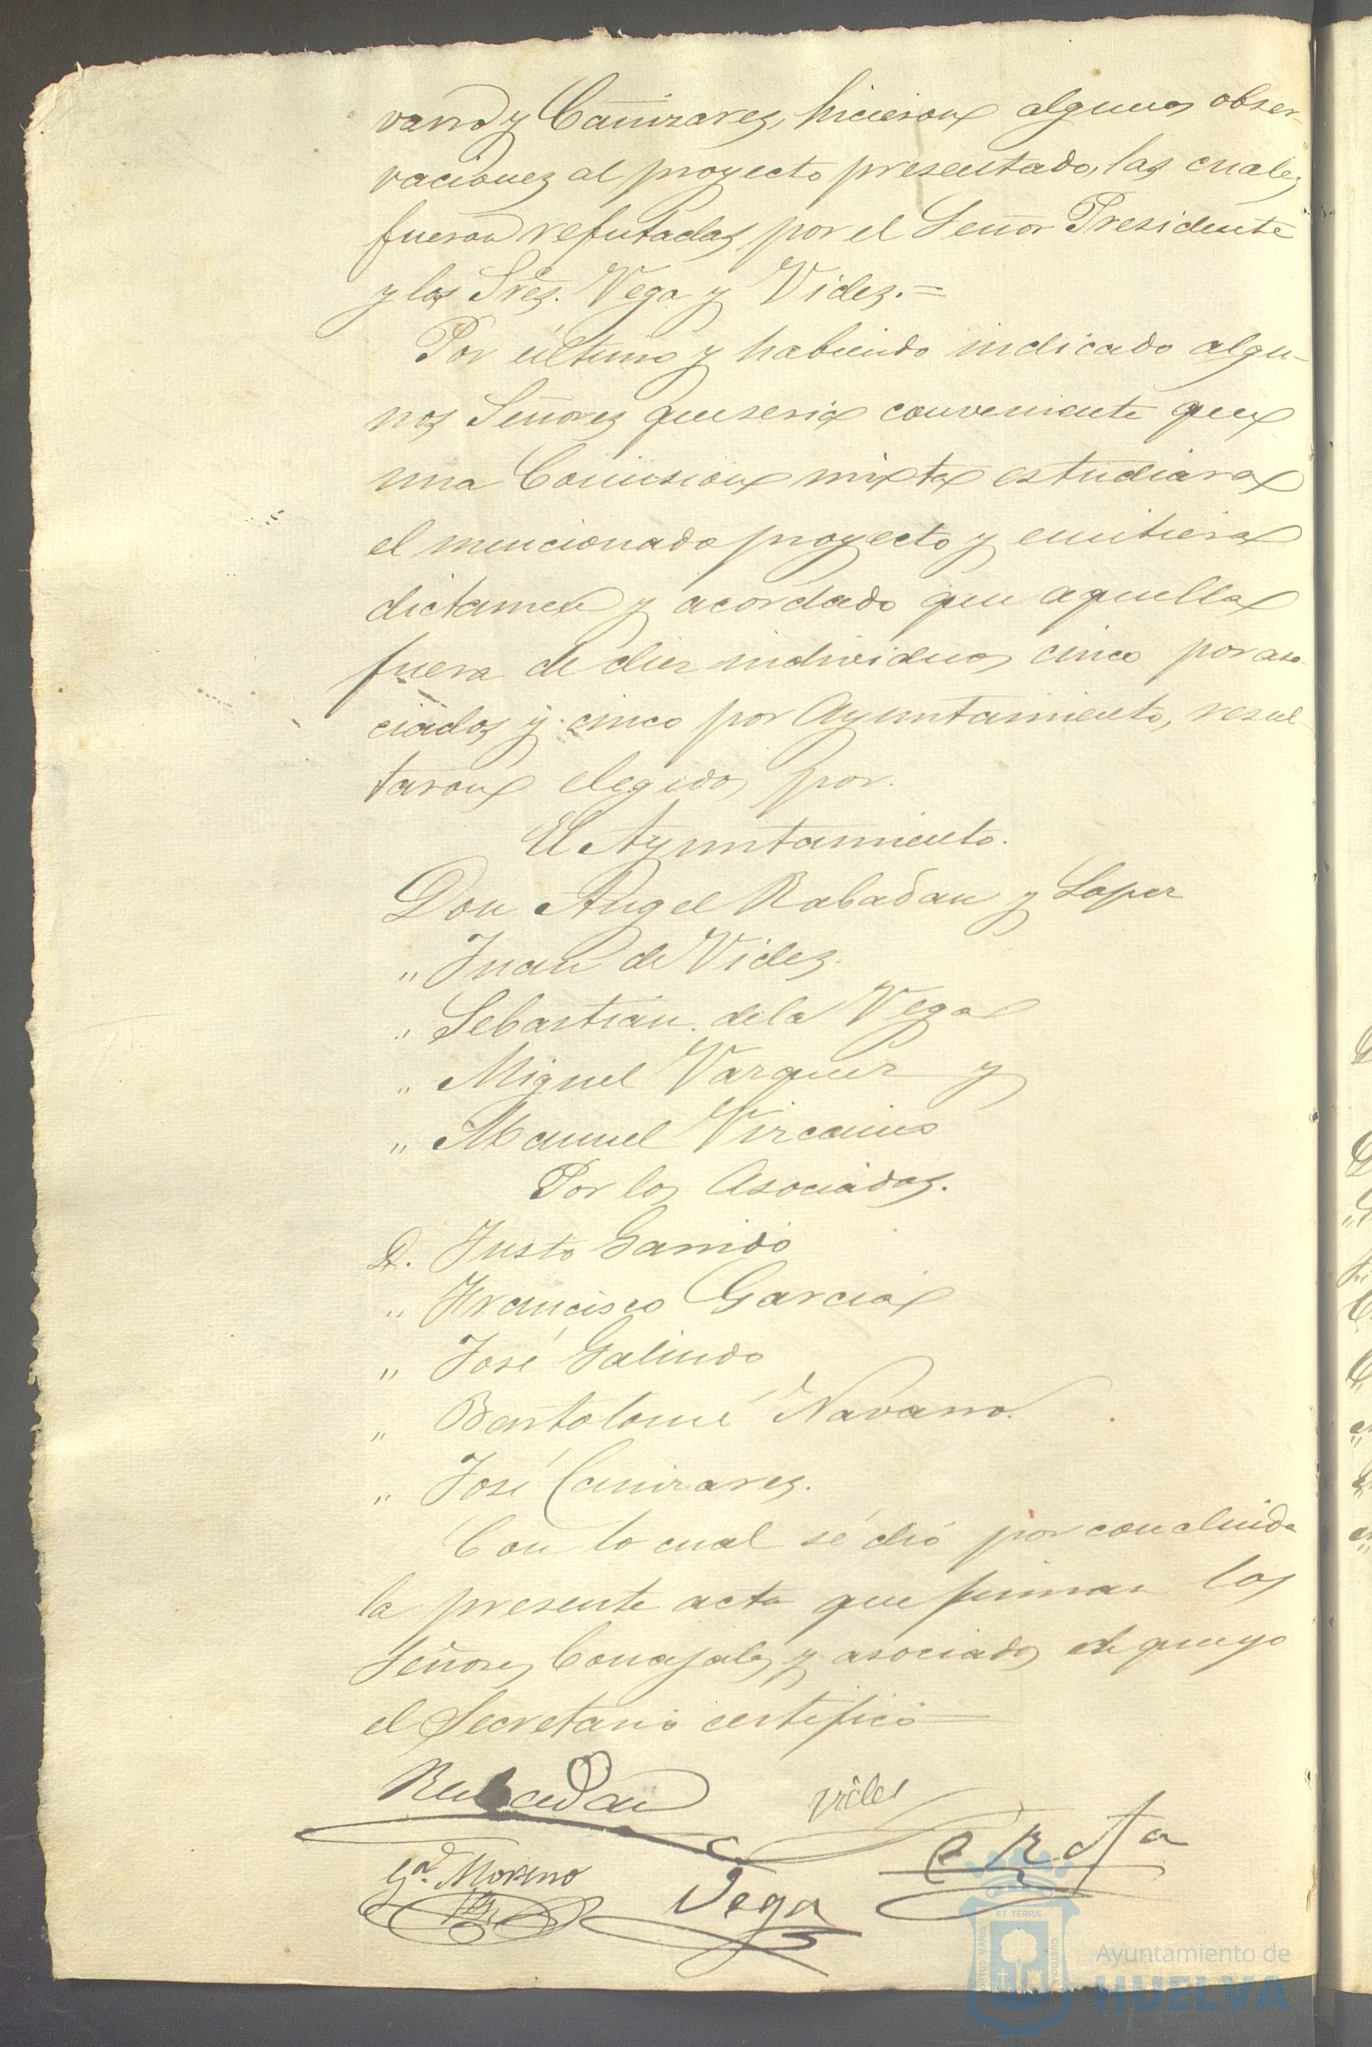 varro y Cañizares, hicieron algunas obser-
vaciones al proyecto presentado, las cuales
fueron refutadas por el Señor Presidente
y los Sres. Vega y Vides.=
Por último y habiendo indicado algu-
nos Señores que seria conveniente que
una Comision mixta estudiara
el mencionado proyecto y emitiera
dictamen y acordado que aquella
fuera de diez individuos cinco por aso-
ciados y cinco por Ayuntamiento, resul-
taron elegidos por.
El Ayuntamiento.
Don Angel Rabadan y Lopez
" Juan de Vides.
" Sebastian de la Vega
" Miguel Vazquez y
" Manuel Vizcaino
Por los Asociados.
D. Justo Garrido
" Francisco Garcia
" José Galindo
" Bartolomé Navarro.
" José Canizares.
Con lo cual se dió por concluida
la presente acta que firman los
Señores Concejales y asociados de que yo
el Secretario certifico
Rabadan Vides
Ga. Moreno Vega Rofa
Ayuntamiento de
HUELVA